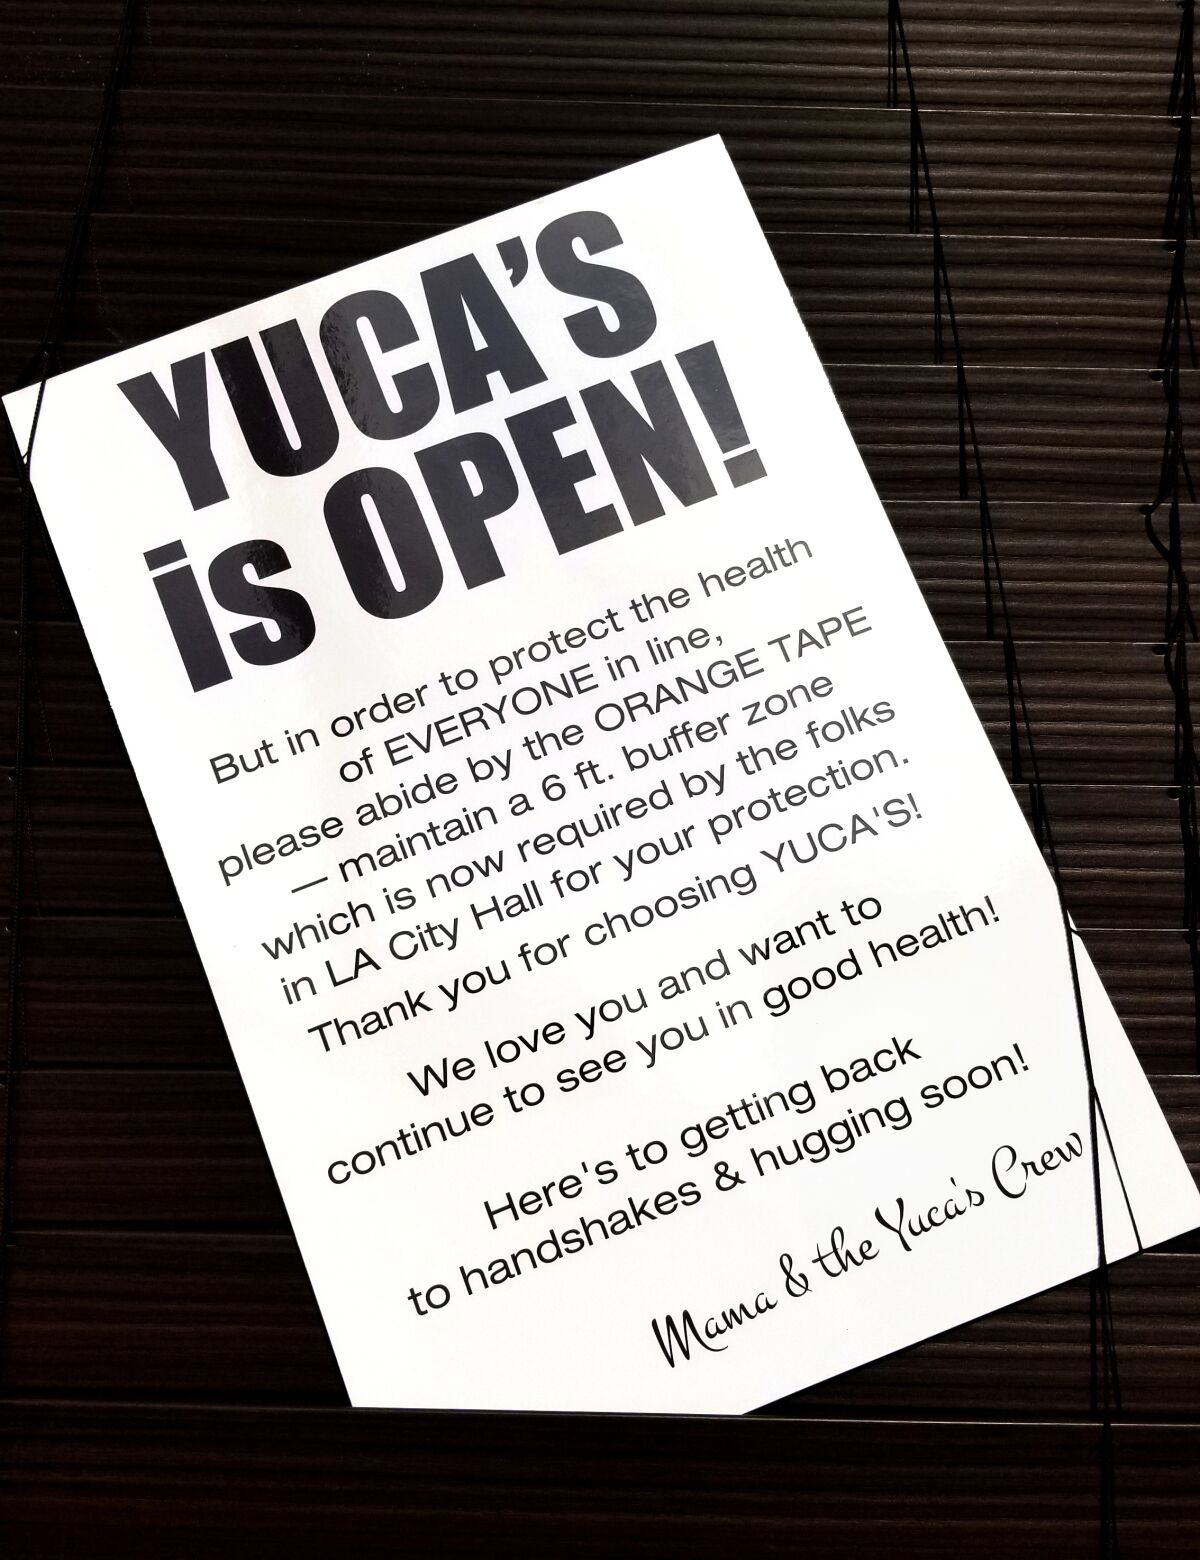 YUCA'S
is OPEN!
But in order to protect the health
of EVERYONE in line,
please abide by the ORANGE TAPE
— maintain a 6 ft. buffer zone
which is now required by the folks
in LA City Hall for your protection.
Thank you for choosing YUCA'S!
We love you and want to
continue to see you in good health!
Here's to getting back
to handshakes & hugging soon!
Mama & the Yuca's Crew